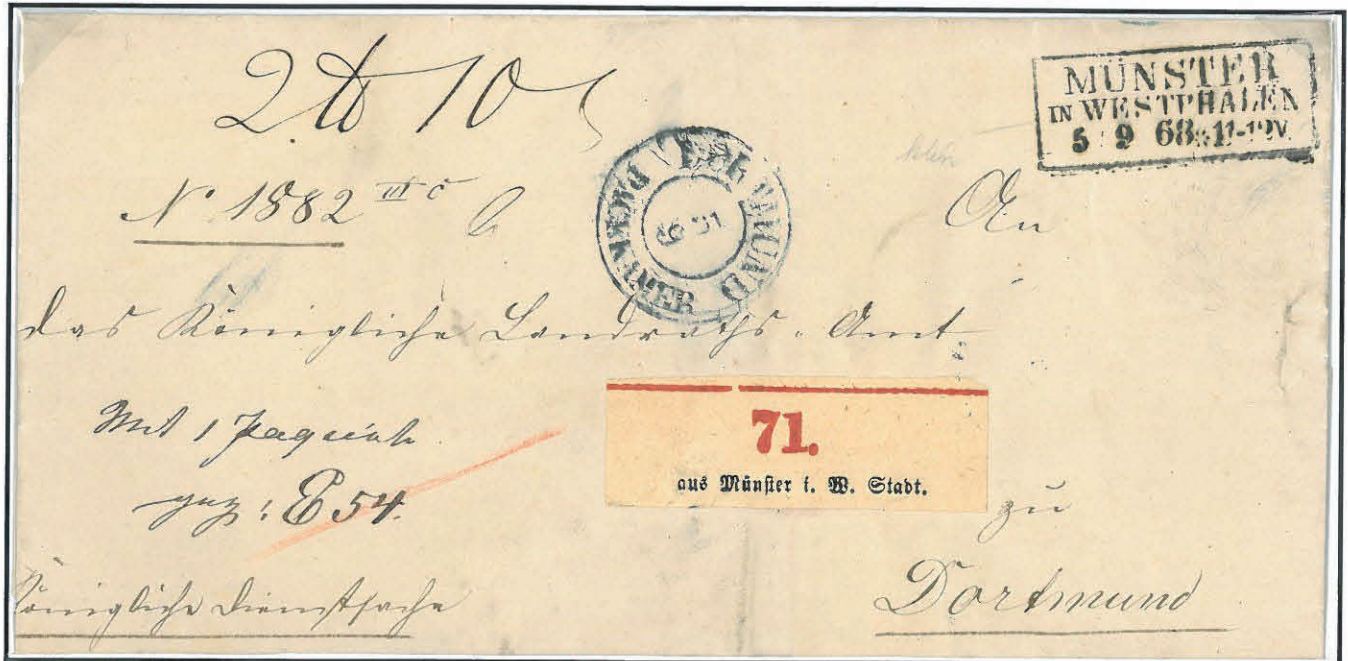 2 ℔ 10
MÜNSTER
IN WESTPHALEN
5 9 68 11-12V.
No 1882 III C
PACKKAMMER DORTMUND
An
das Königliche Landraths-Amt
Mit 1 Paquet
gez: E 54.
71.
aus Münster i. W. Stadt.
zu
Dortmund
Königliche Dienstsache